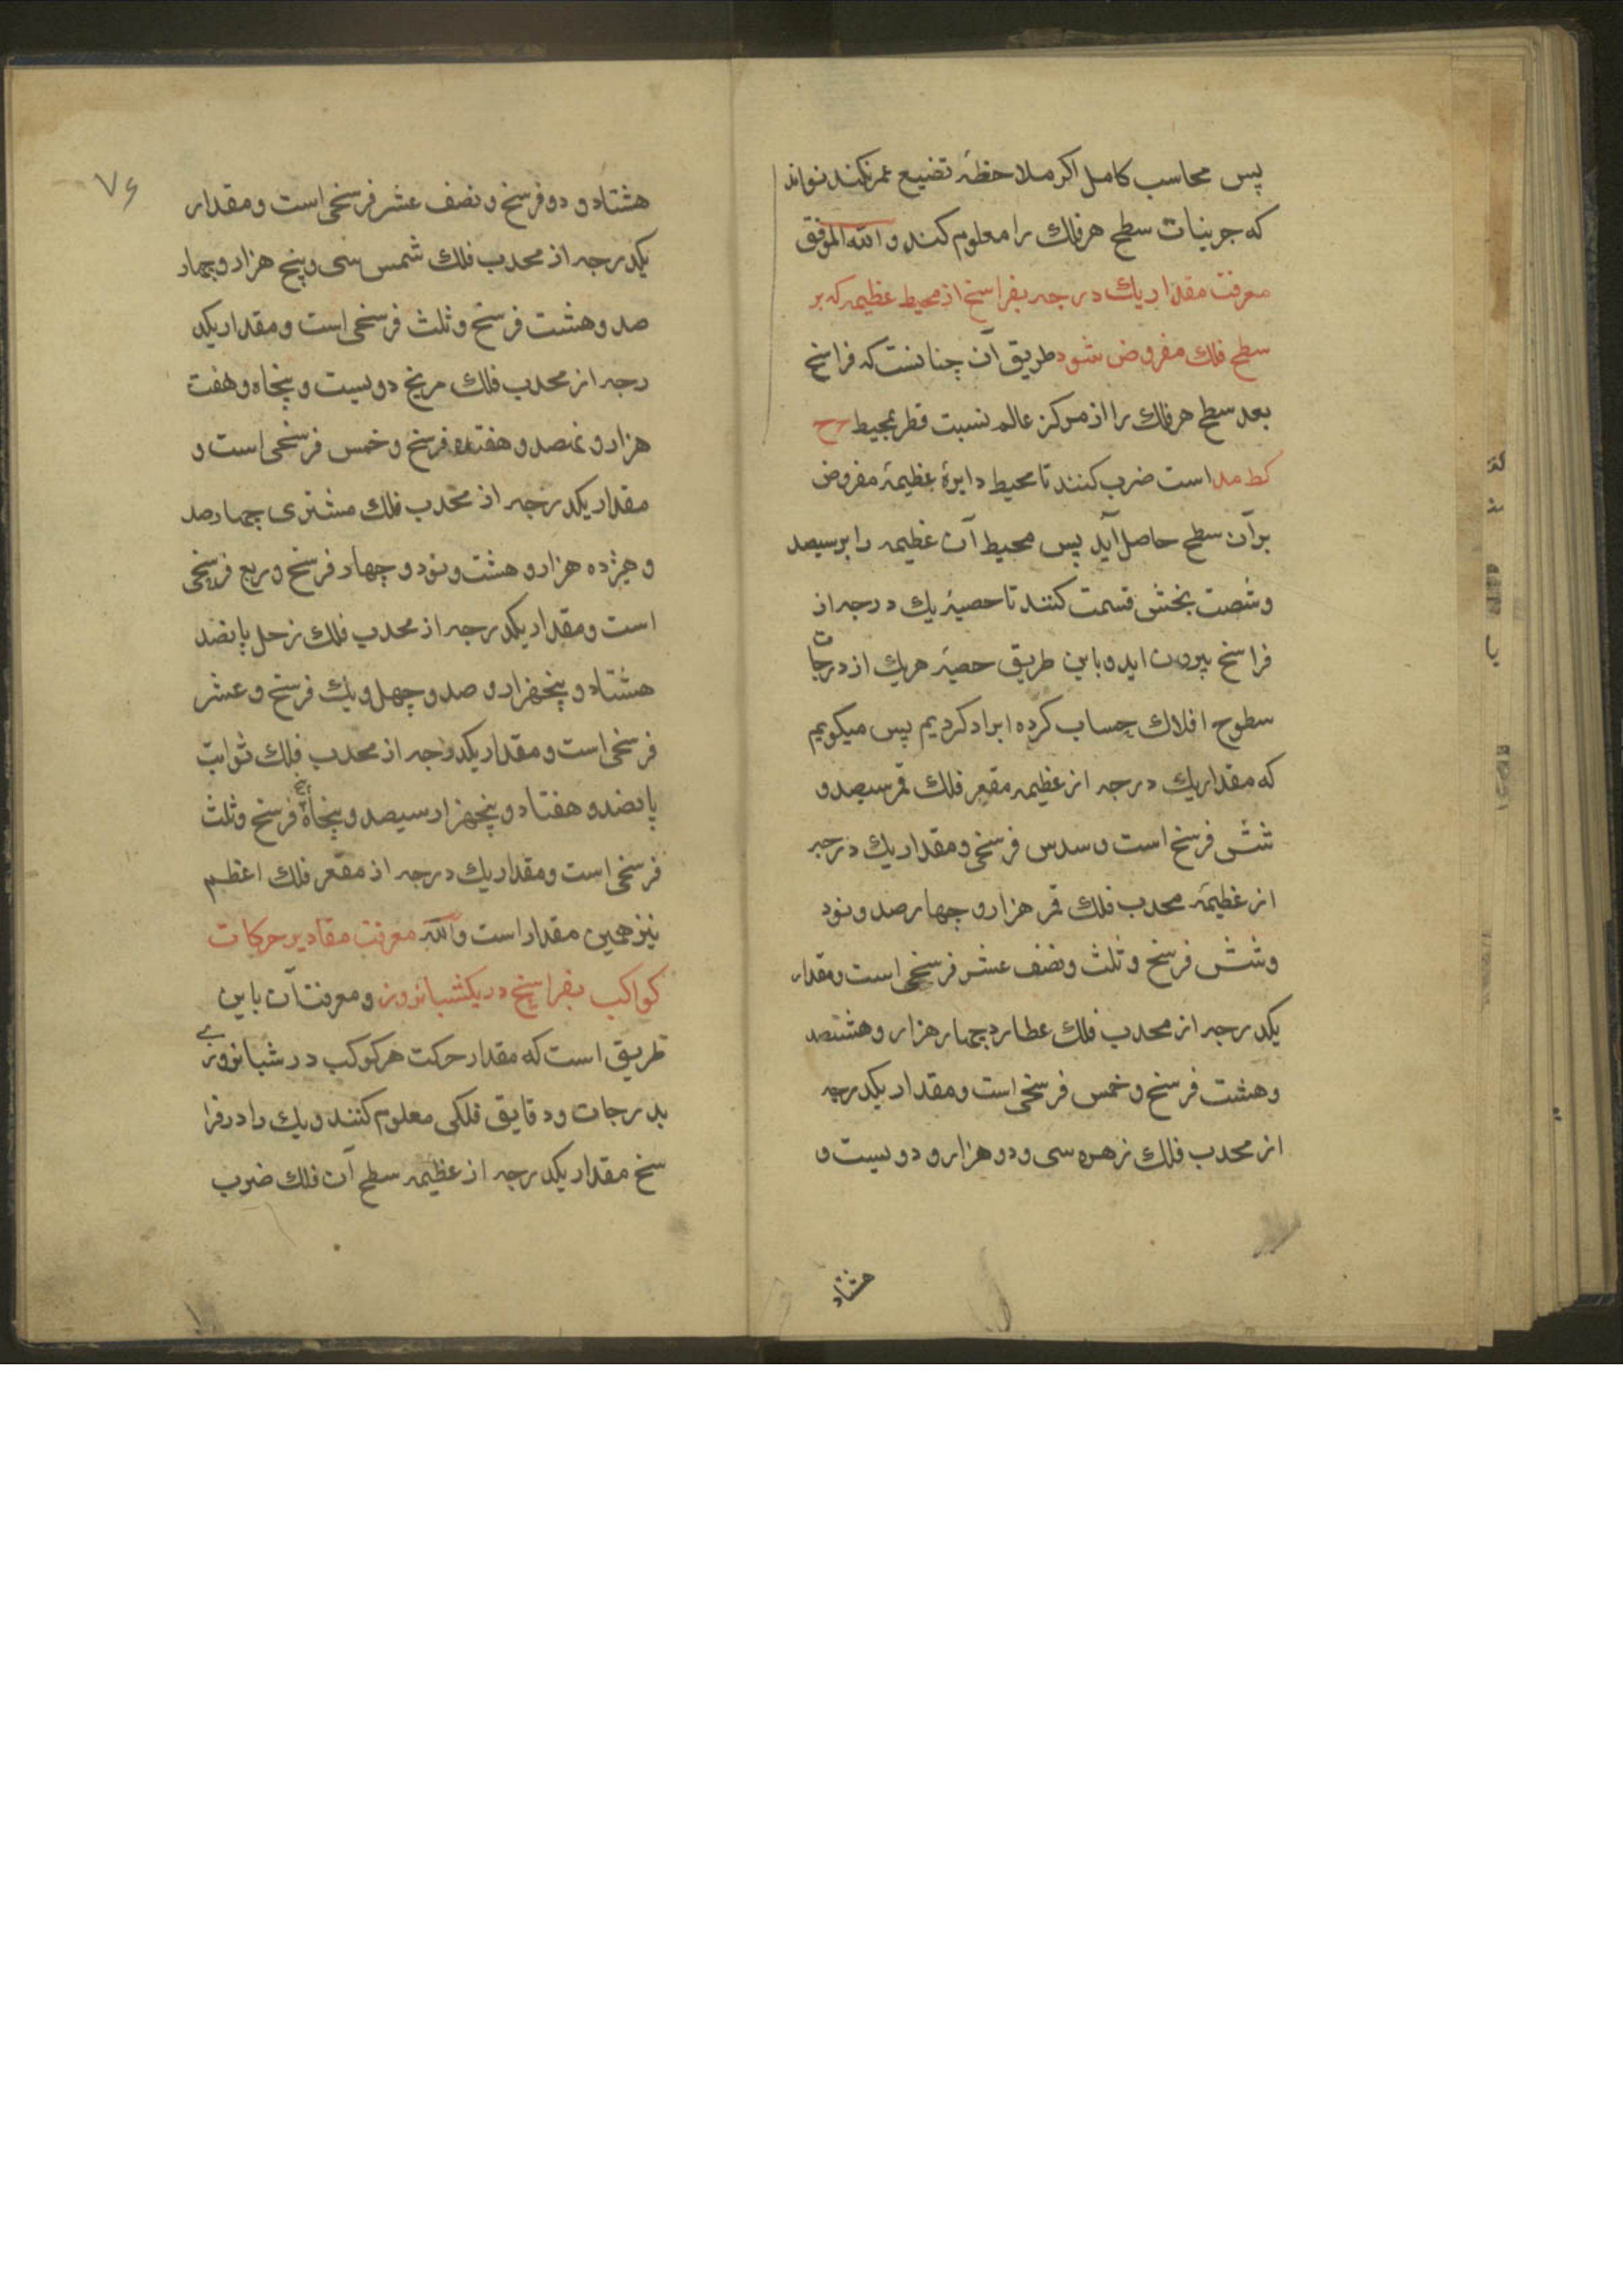 پس محاسب کامل اکر ملاحظهٔ تضییع عمر نکند تواند
که جریبات سطح هر فلك را معلوم کند و الله الموفق
معرفت مقدار یك درجه بفراسخ از محیط عظیمه که بر
سطح فلك مفروض شود طریق آن چنانست که فراسخ
بعد سطح هر فلك را از مرکز عالم نسبت قطر بمحیط ح
کط مد است ضرب کنند تا محیط دایرهٔ عظیمهٔ مفروض
بر آن سطح حاصل آید پس محیط آن عظیمه را بر سیصد
و شصت بخش قسمت کنند تا حصهٔ یك درجه از
فراسخ بیرون اید و باین طریق حصهٔ هر یك از درجات
سطوح افلاك حساب کرده ایراد کردیم پس میکویم
که مقدار یك درجه از عظیمه مقعر فلك قمر سیصد و
شش فرسخ است و سدس فرسخی و مقدار یك درجه
از عظیمهٔ محدب فلك قمر هزار و چهار صد و نود
و شش فرسخ و ثلث و نصف عشر فرسخی است و مقدار
یکدرجه از محدب فلك عطارد چهار هزار و هشتصد
و هشت فرسخ و خمس فرسخی است و مقدار یکدرجه
از محدب فلك زهره سی و دو هزار و دویست و
هشتاد
۷۶
هشتاد و دو فرسخ و نصف عشر فرسخی است و مقدار
یکدرجه از محدب فلك شمس سی و پنج هزار و چهار
صد و هشت فرسخ و ثلث فرسخی است و مقدار یکد
رجه از محدب فلك مریخ دویست و پنجاه و هفت
هزار و نهصد و هفتاد فرسخ و خمس فرسخی است و
مقدار یکدرجه از محدب فلك مشتری چهارصد
و هیژده هزار و هشت و نود و چهار فرسخ و ربع فرسخی
است و مقدار یکدرجه از محدب فلك زحل پانصد
هشتاد و پنجهزار و صد و چهل و یك فرسخ و عشر
فرسخی است و مقدار یکدرجه از محدب فلك ثوابت
پانصد و هفتاد و پنجهزار سیصد و پنجاه فرسخ و ثلث
فرسخی است و مقدار یك درجه از مقعر فلك اعظم
نیز همین مقدار است والله معرفت مقادیر حرکات
کواکب بفراسخ در یکشبانروز و معرفت آن باین
طریق است که مقدار حرکت هر کوکب در شبانروزی
بدرجات و دقایق فلکی معلوم کنند و یك را در فرا
سخ مقدار یکدرجه از عظیمه سطح آن فلك ضرب